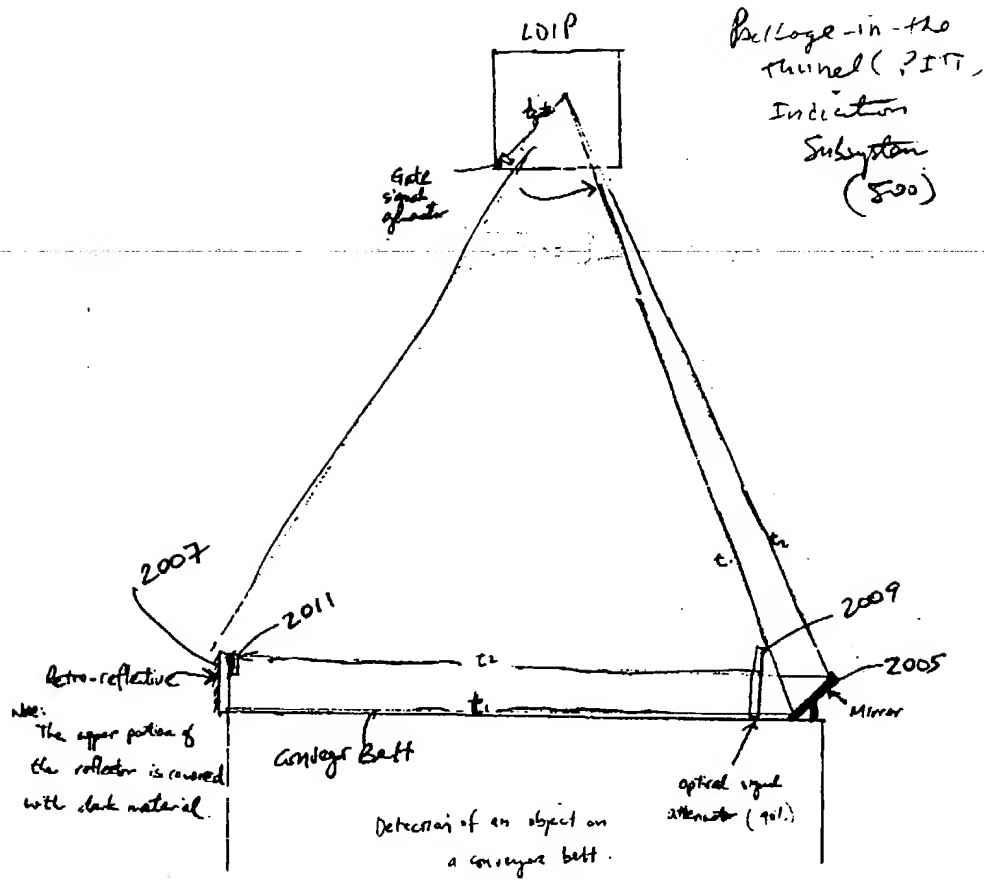 LDIP
Package-in-the
Tunnel (PIT)
Indication
Subsystem
(500)
Gate
signal
generator
t1
t2
2007
2011
2009
2005
Retro-reflective
t2
t1
Mirror
Note:
The upper portion of
the reflector is covered
with dark material.
Conveyor Belt
optical signal
attenuator (90%)
Detection of an object on
a conveyor belt.